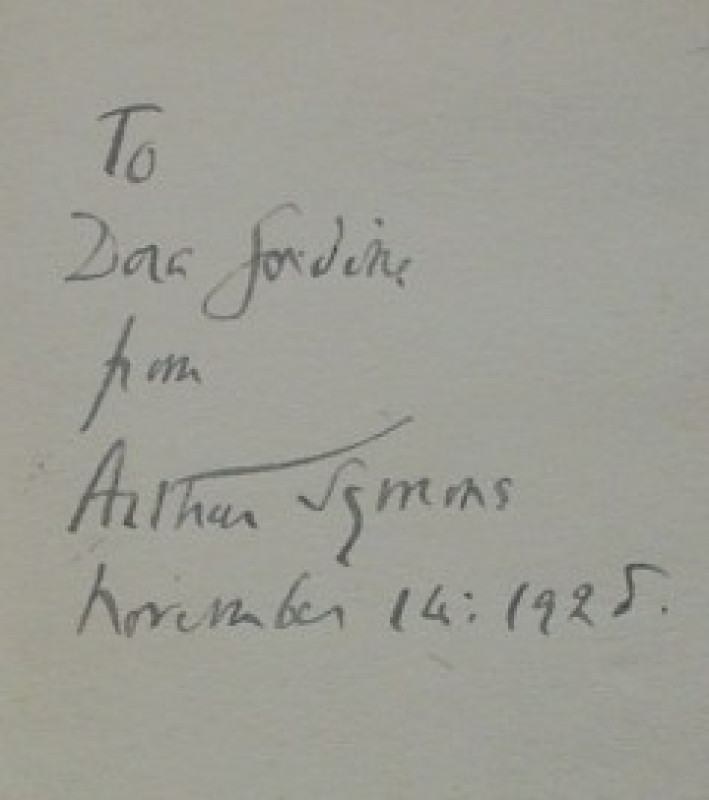 To
Dora Gordine
from
Arthur Symons
November 14: 1925.